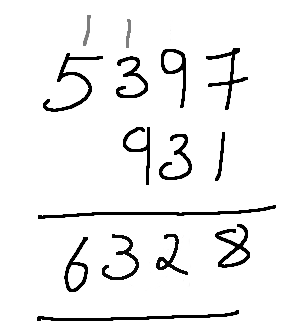 1 1
5397
931
6328